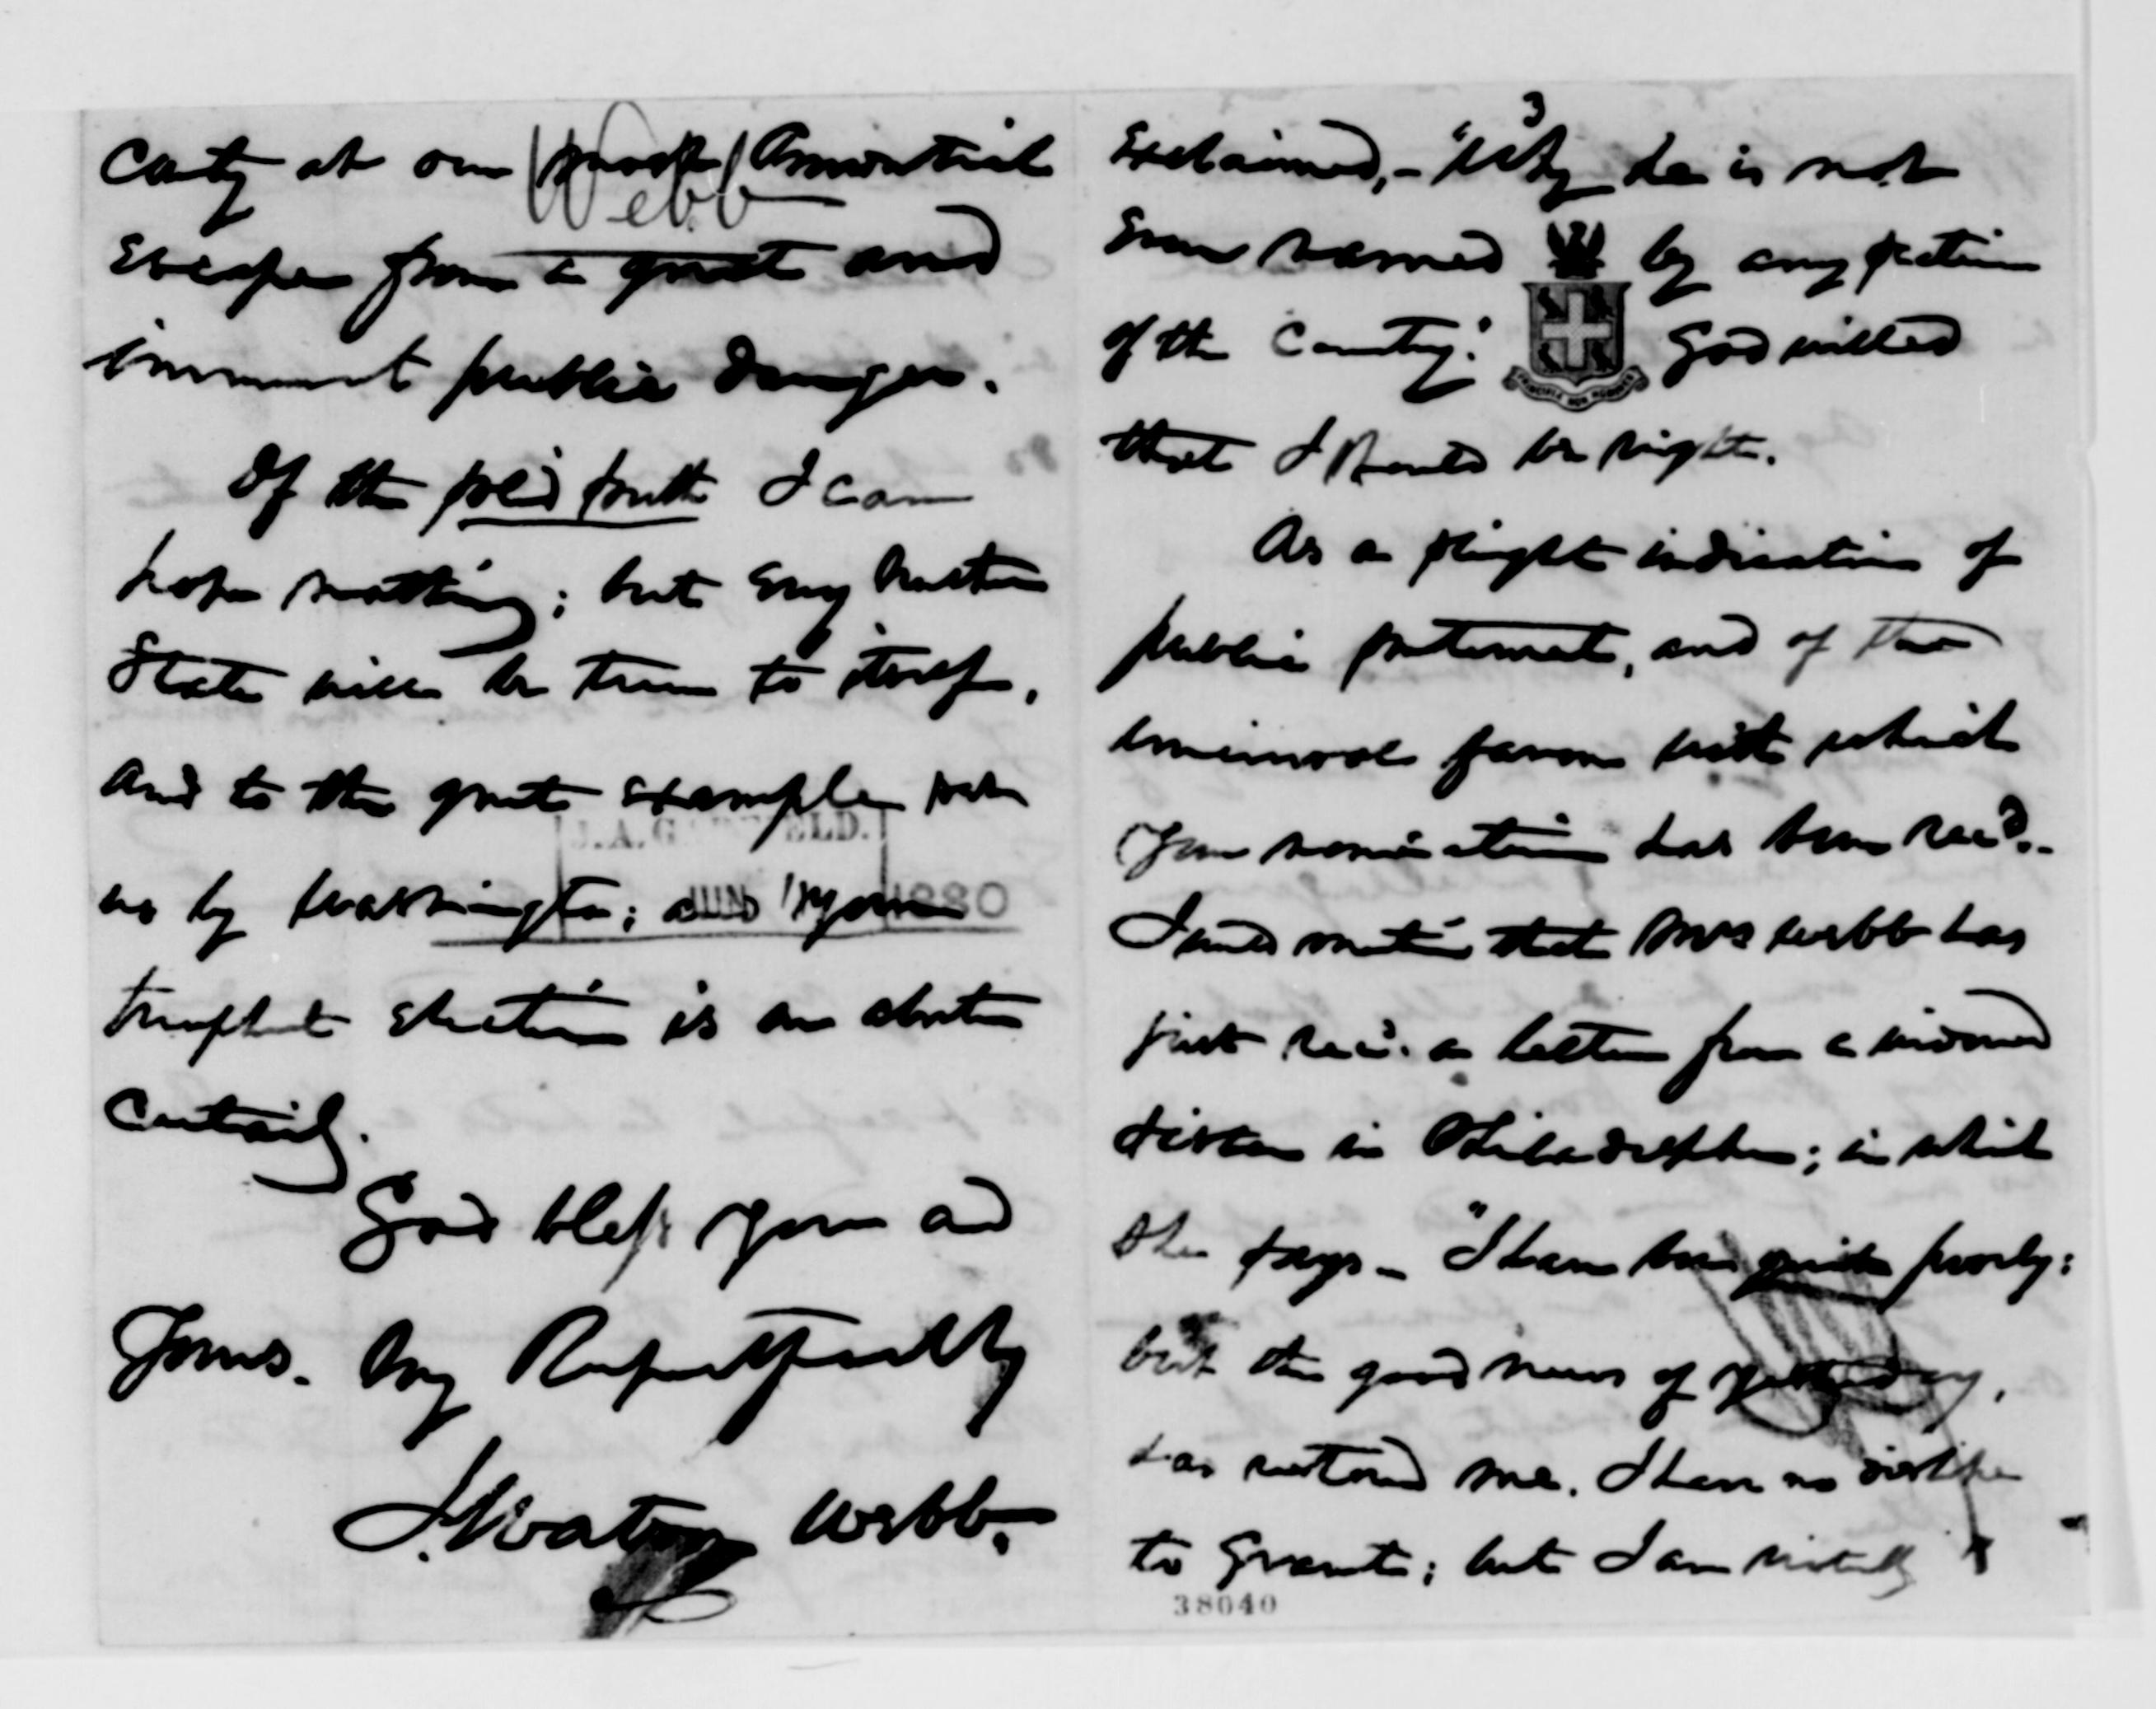 casity at our most Providential
Webb
escape from a great and
imminent public danger.
Of the solid South I can
hope nothing; but every Northern
State will be true to itself,
and to the great example set
J.A. GARFIELD.
us by Washington; and your
JUN 1880
triumphant election is an absolute
certainty.
God bless you and
Yours. Very Respectfully
J. Watson Webb.
3
exclaimed,- "Why he is not
even named by any portion
of the Country." God willed
that I should be right.
As a slight indication of
public sentiment, and of the
universal favor with which
your nomination has been rec'd.-
I will mention that Mrs Webb has
just rec'd. a letter from a widowed
sister in Philadelphia; in which
she says - "I have been quite poorly:
but the good news of yesterday,
has restored me. I have no dislike
to Grant; but I am
38040